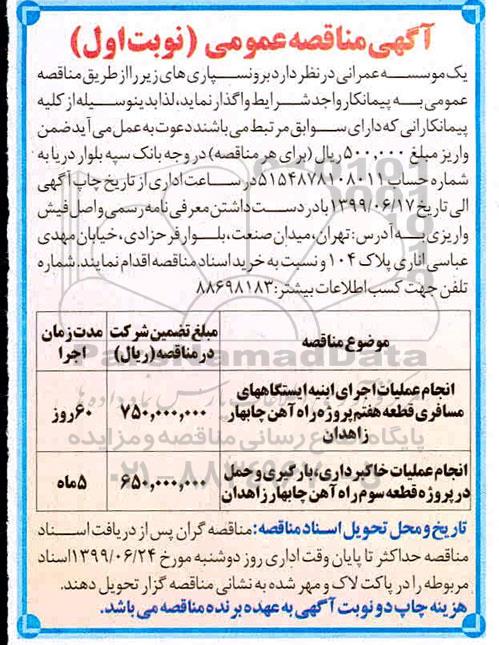 آگهی مناقصه عمومی (نوبت اول)
یک موسسه عمرانی در نظر دارد برونسپاری های زیر را از طریق مناقصه
عمومی به پیمانکار واجد شرایط واگذار نماید، لذا بدینوسیله از کلیه
پیمانکارانی که دارای سوابق مرتبط می باشند دعوت به عمل می آید ضمن
واریز مبلغ ۵۰۰,۰۰۰ ریال (برای هر مناقصه) در وجه بانک سپه بلوار دریا به
شماره حساب ۵۱۵۴۸۷۸۱۰۸۰۱۱ در ساعت اداری از تاریخ چاپ آگهی
الی تاریخ ۱۳۹۹/۰۶/۱۷ با در دست داشتن معرفی نامه رسمی و اصل فیش
واریزی به آدرس: تهران، میدان صنعت، بلوار فرحزادی، خیابان مهدی
عباسی اناری پلاک ۱۰۴ و نسبت به خرید اسناد مناقصه اقدام نمایند. شماره
تلفن جهت کسب اطلاعات بیشتر: ۸۸۶۹۸۱۸۳
موضوع مناقصه مبلغ تضمین شرکت در مناقصه (ریال) مدت زمان اجرا
انجام عملیات اجرای ابنیه ایستگاههای
مسافری قطعه هفتم پروژه راه آهن چابهار ۷۵۰,۰۰۰,۰۰۰ ۶۰ روز
زاهدان
انجام عملیات خاکبرداری، بارگیری و حمل
در پروژه قطعه سوم راه آهن چابهار زاهدان ۶۵۰,۰۰۰,۰۰۰ ۵ ماه
تاریخ و محل تحویل اسناد مناقصه: مناقصه گران پس از دریافت اسناد
مناقصه حداکثر تا پایان وقت اداری روز دوشنبه مورخ ۱۳۹۹/۰۶/۲۴ اسناد
مربوطه را در پاکت لاک و مهر شده به نشانی مناقصه گزار تحویل دهند.
هزینه چاپ دو نوبت آگهی به عهده برنده مناقصه می باشد.
ParsNamadData
پایگاه اطلاع رسانی مناقصه و مزایده